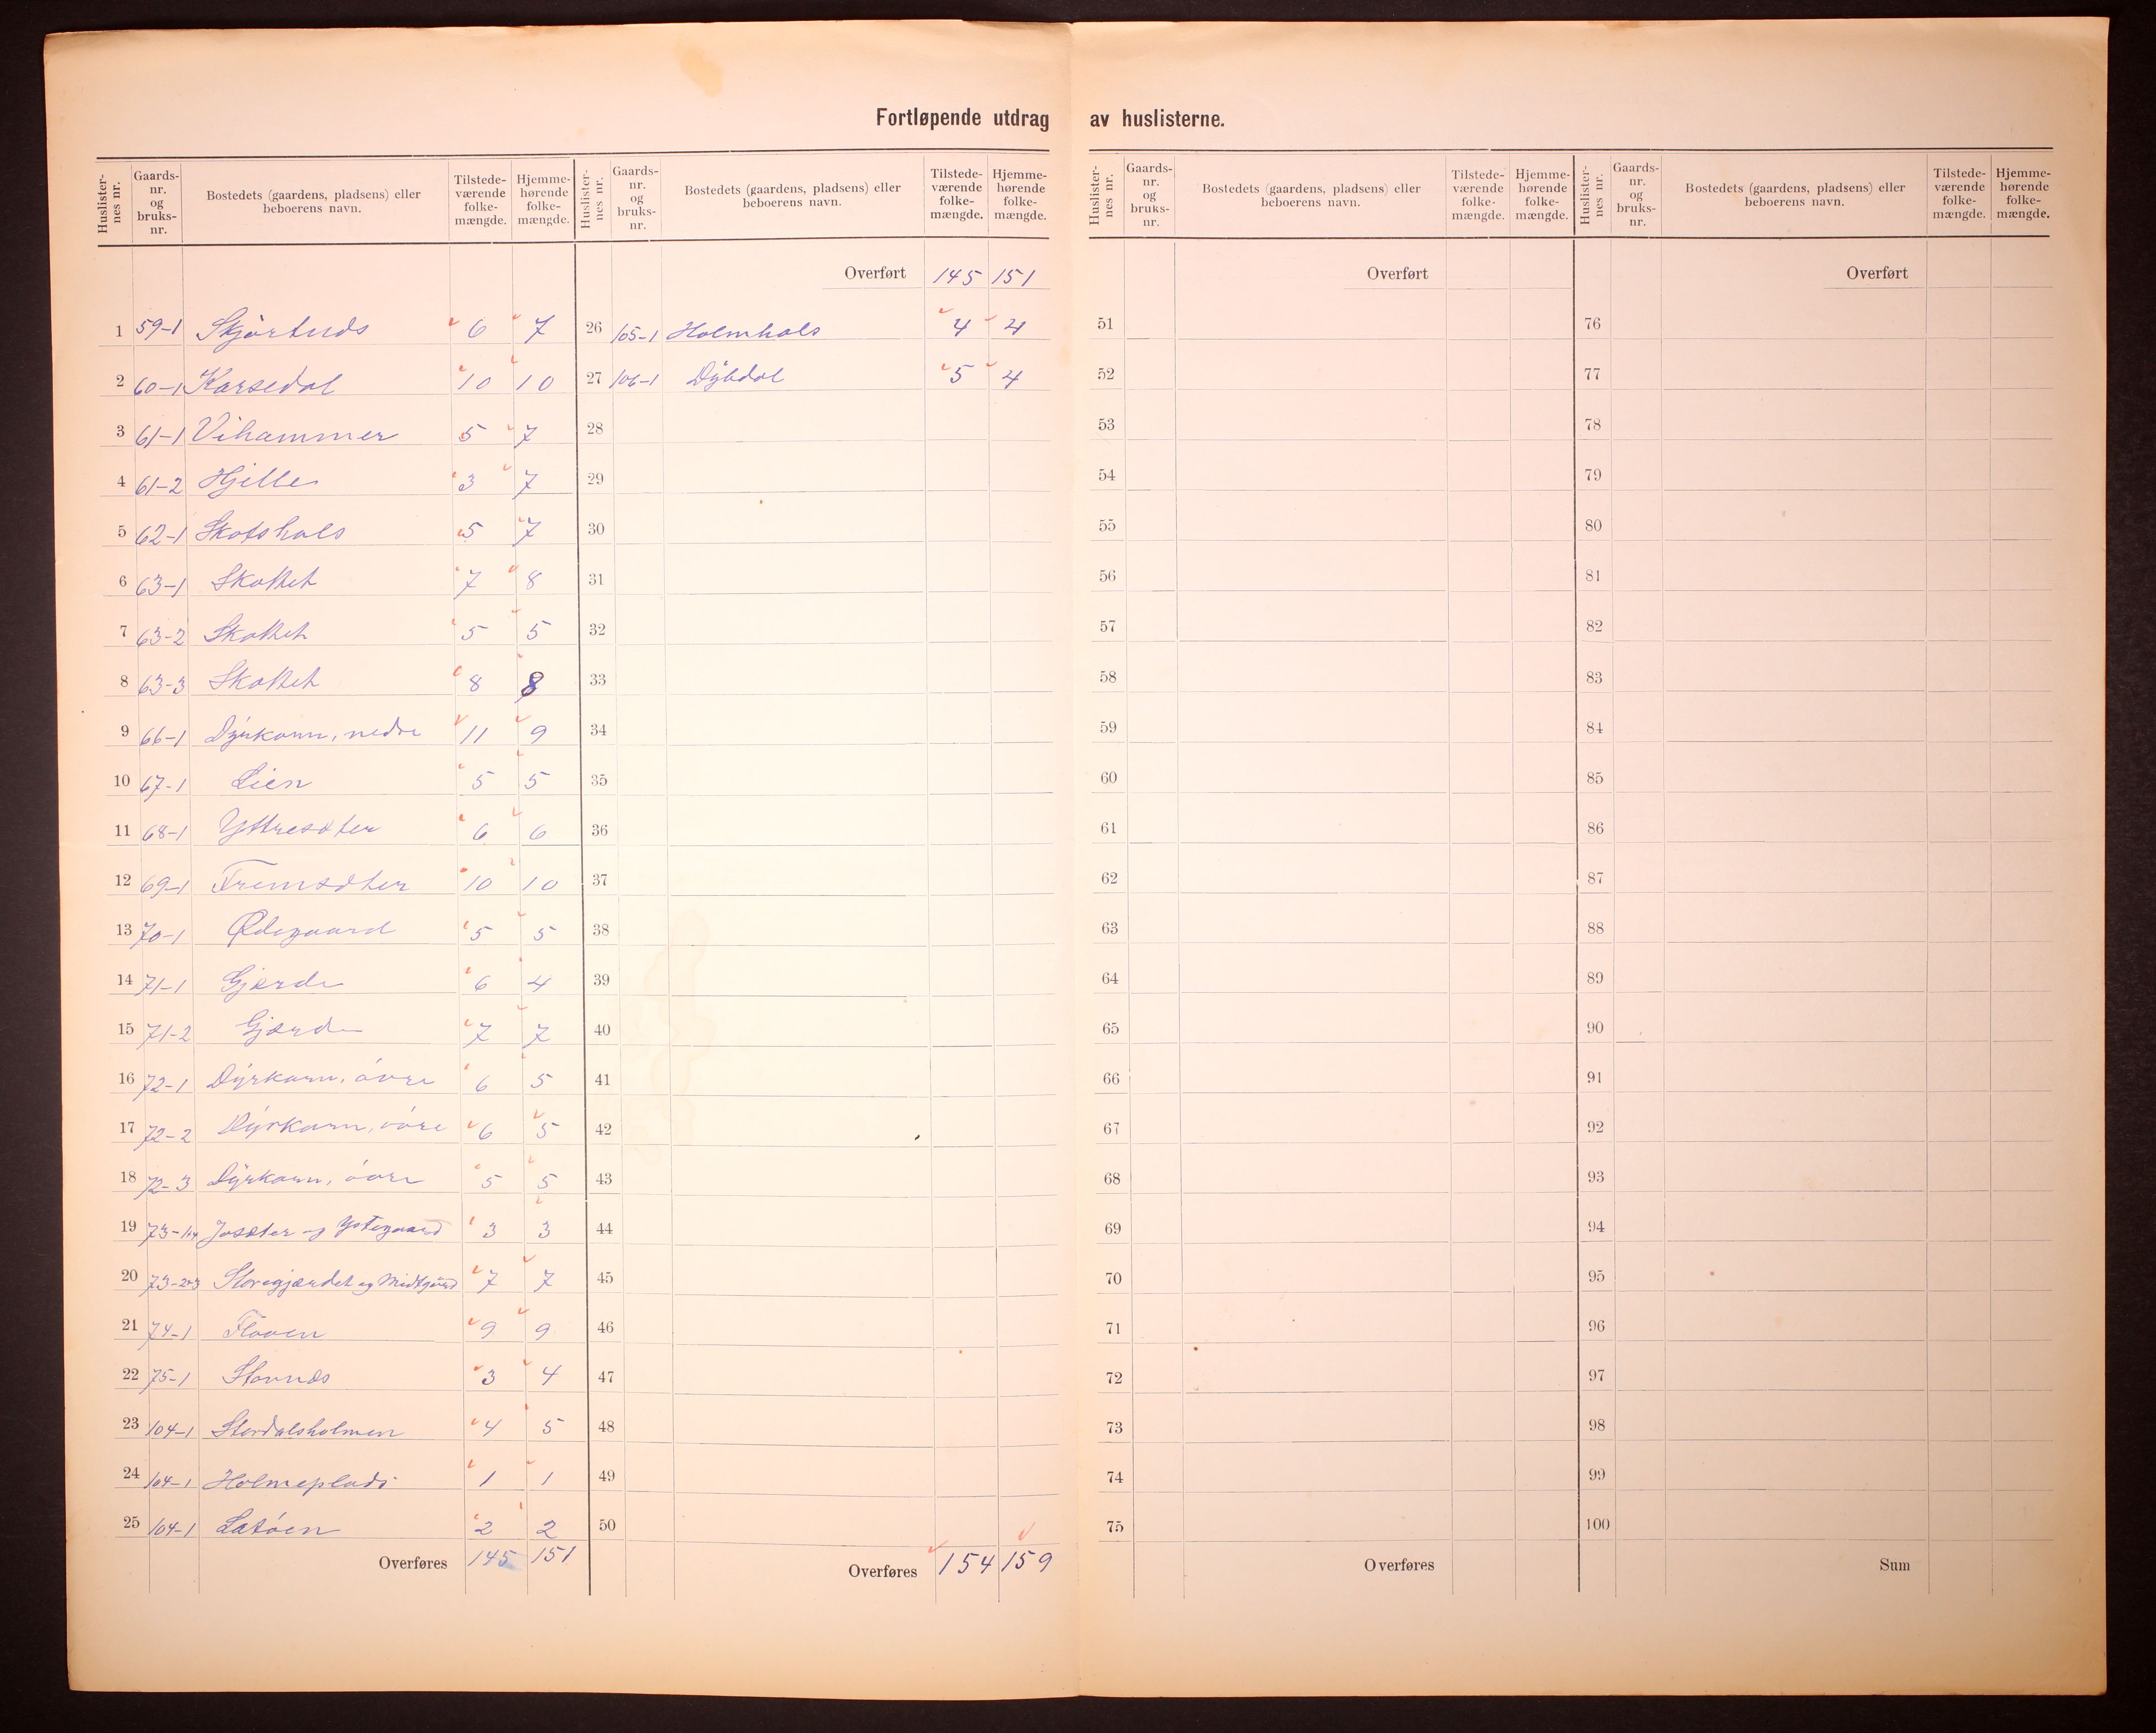 Fortløpende utdrag av huslisterne.
Huslisternes nr. Gaards-nr. og bruks-nr. Bostedets (gaardens, pladsens) eller beboerens navn. Tilstede-værende folke-mængde. Hjemme-hørende folke-mængde.
Huslisternes nr. Gaards-nr. og bruks-nr. Bostedets (gaardens, pladsens) eller beboerens navn. Tilstede-værende folke-mængde. Hjemme-hørende folke-mængde.
Huslisternes nr. Gaards-nr. og bruks-nr. Bostedets (gaardens, pladsens) eller beboerens navn. Tilstede-værende folke-mængde. Hjemme-hørende folke-mængde.
Huslisternes nr. Gaards-nr. og bruks-nr. Bostedets (gaardens, pladsens) eller beboerens navn. Tilstede-værende folke-mængde. Hjemme-hørende folke-mængde.
Overført 145 151 Overført Overført
1 59-1 6 7 26 105-1 Holmhals 4 4 51 76
2 60-1 Karsedal 10 10 27 106-1 Dybdal 5 4 52 77
3 61-1 Vihammer 5 7 28 53 78
4 61-2 Hjelle 3 7 29 54 79
5 62-1 Skotshals 5 7 30 55 80
6 63-1 Skottet 7 8 31 56 81
7 63-2 Skottet 5 5 32 57 82
8 63-3 Skottet 8 8 33 58 83
9 66-1 Dyrkorn, nedre 11 9 34 59 84
10 67-1 Lien 5 5 35 60 85
11 68-1 Yttresæter 6 6 36 61 86
12 69-1 Fremsæter 10 10 37 62 87
13 70-1 Ødegaard 5 5 38 63 88
14 71-1 Gjerde 6 4 39 64 89
15 71-2 Gjærde 7 7 40 65 90
16 72-1 Dyrkorn, óvre 6 5 41 66 91
17 72-2 Dyrkorn, óvre 6 5 42 67 92
18 72-3 Dyrkorn, óvre 5 5 43 68 93
19 73-1+4 Josæter og Ystegaard 3 3 44 69 94
20 73-2+3 Storegjærdet og Midtgaard 7 7 45 70 95
21 74-1 Floven 9 9 46 71 96
22 75-1 Stavnæs 3 4 47 72 97
23 104-1 Stordalsholmen 4 5 48 73 98
24 104-1 Holmeplads 1 1 49 74 99
25 104-1 Løtóen 2 2 50 75 100
Overføres 145 151 Overføres 154 159 Overføres Sum